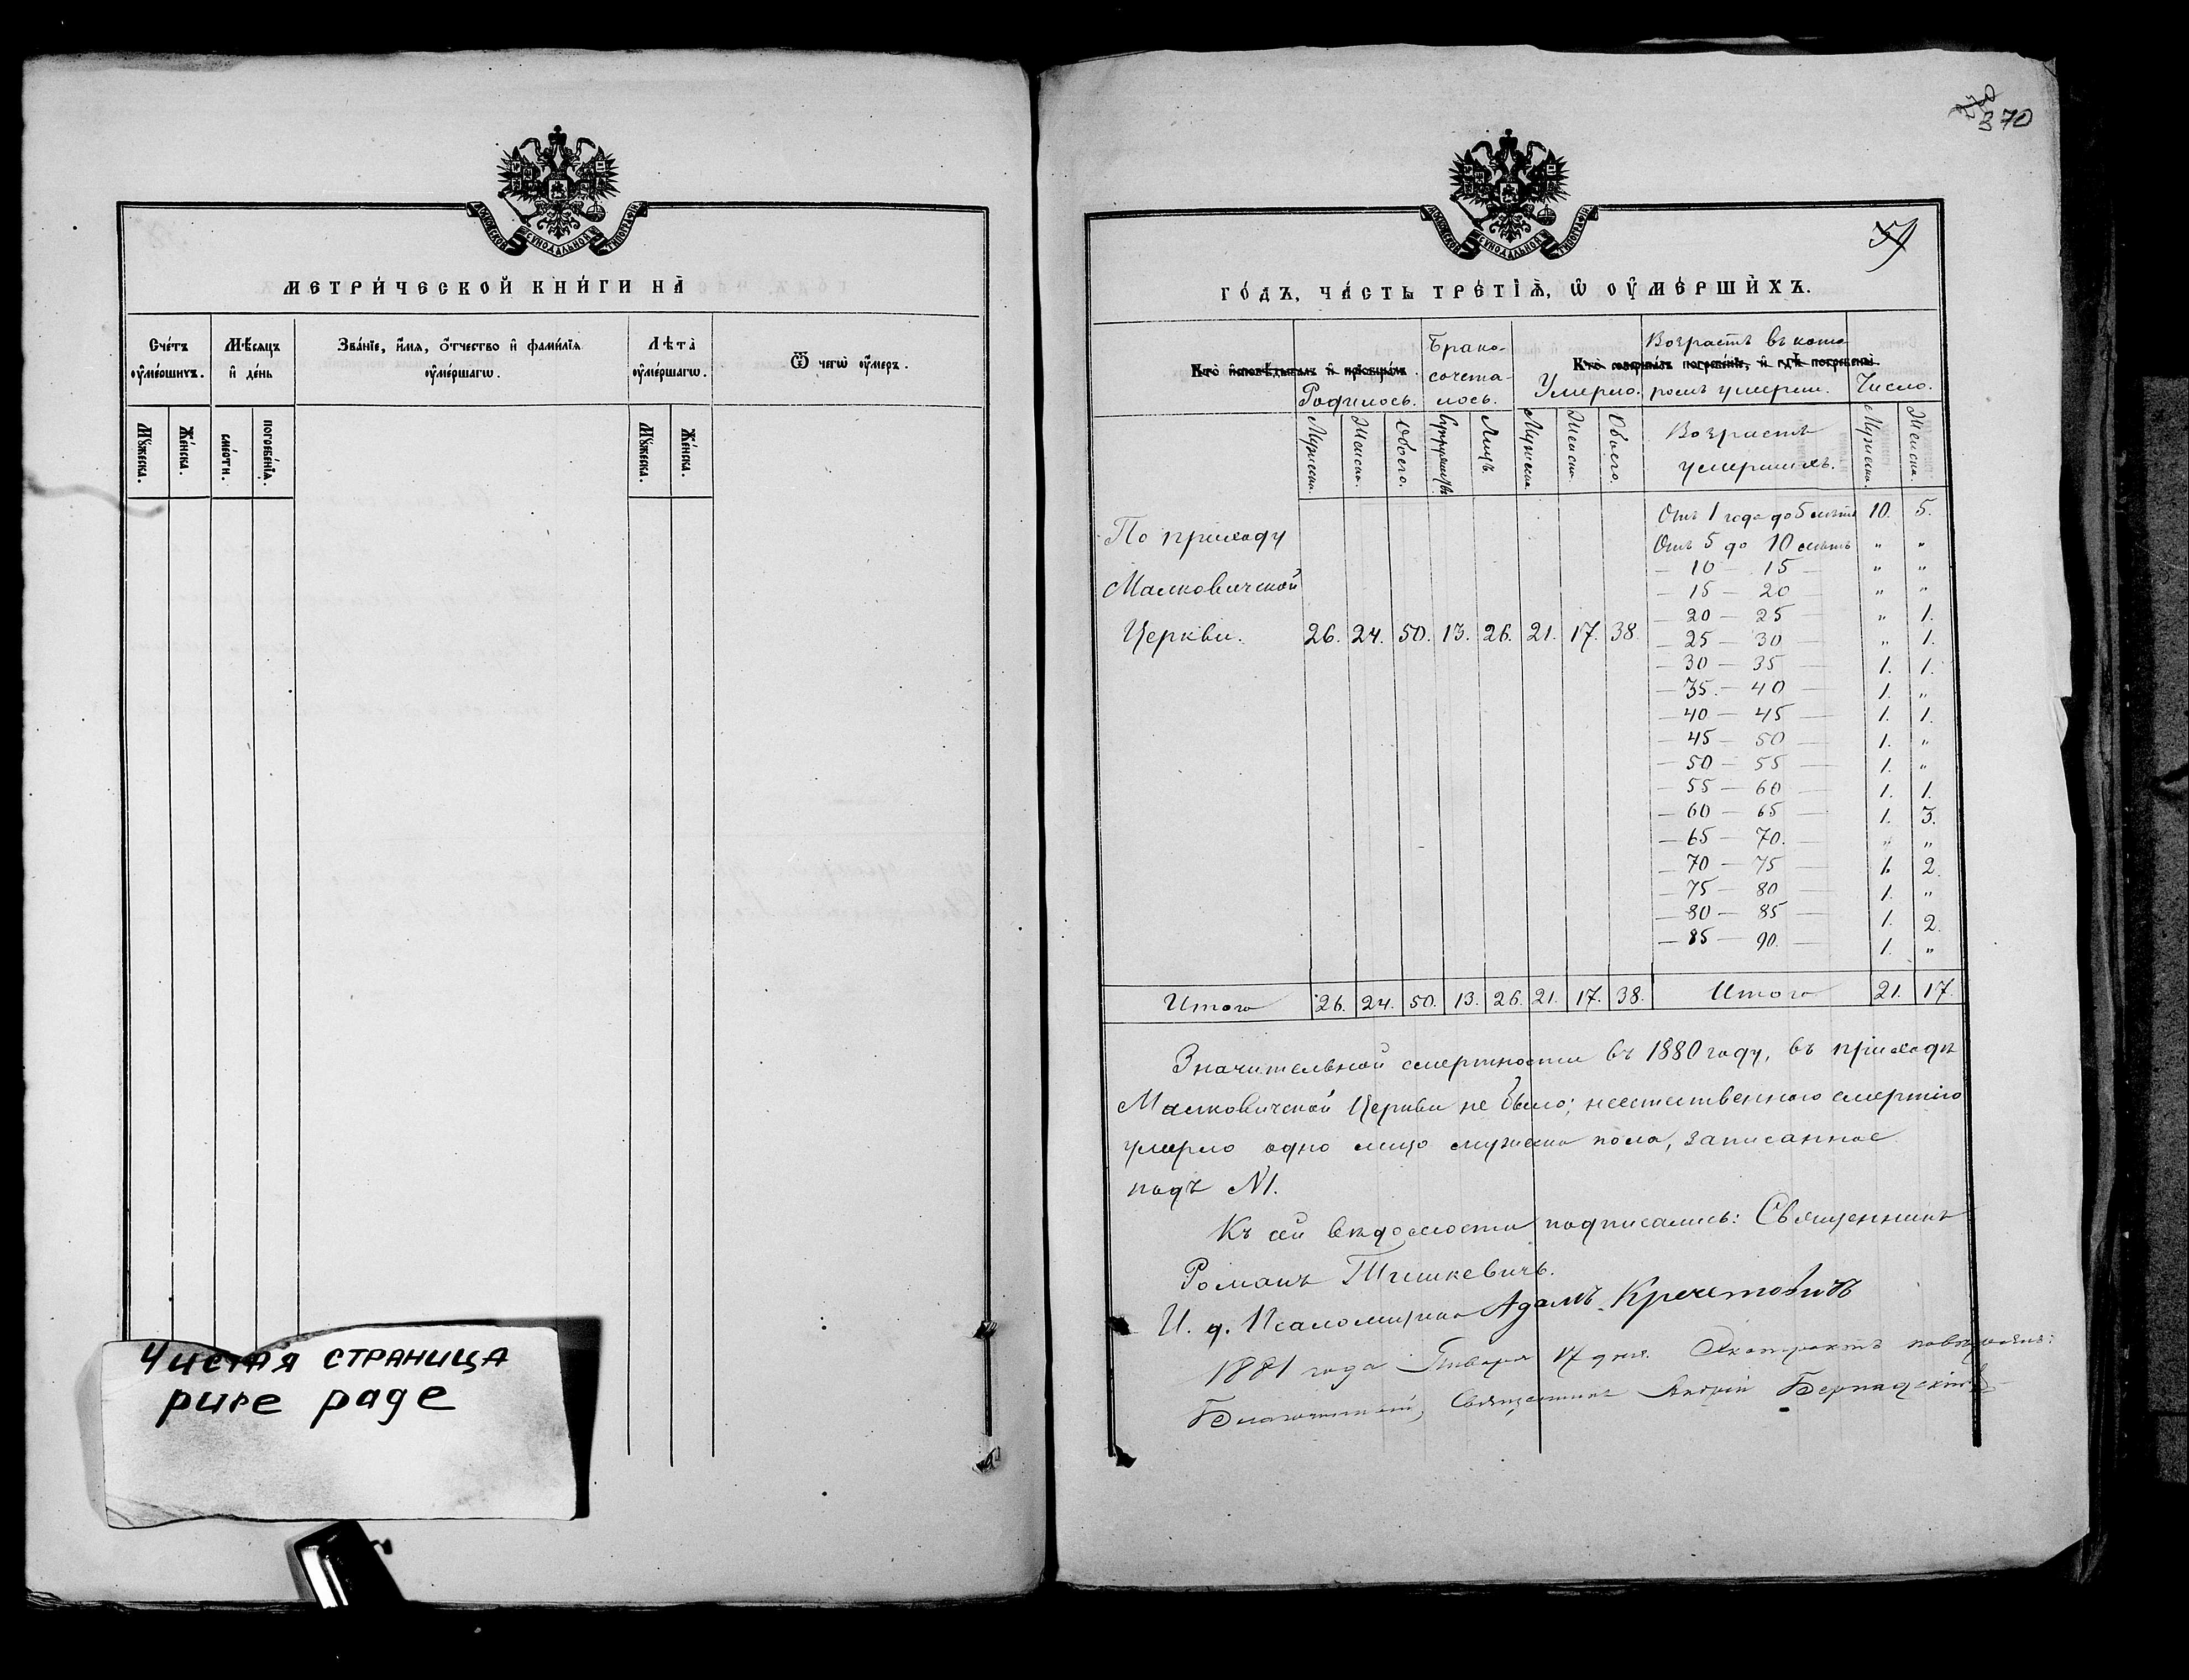 МОСКОВСКОЙ СѴНОДАЛЬНОЙ ТИПОГРАФІИ
МЕТРИ́ЧЕСКОЙ КНИ́ГИ НА̀
Сче́тъ ᲂу҆ме́ршихъ.
Мѣ́сѧцъ и҆ де́нь
Зва́нїе, и҆́мѧ, ѻ҆́тчество и҆ фами́лїѧ ᲂу҆ме́ршагѡ.
Лѣ́та ᲂу҆ме́ршагѡ.
Ѿ чегѡ̀ ᲂу҆́меръ.
Мꙋ́жеска.
Же́нска.
сме́рти.
погребе́нїѧ.
Мꙋ́жеска.
Же́нска.
Чистая страница
pure page
370
59
МОСКОВСКОЙ СѴНОДАЛЬНОЙ ТИПОГРАФІИ
ГО́ДЪ, ЧА́СТЬ ТРЕ́ТІѦ, Ѡ҆ ОУ҆МЕ́РШИХЪ.
Кто̀ и҆сповѣ́дывалъ и҆ прїѡбща́лъ.
Кто̀ соверша́лъ погребе́нїе, и҆ гдѣ̀ погребены̀.
Родилось.
Брако-
сочета-
лось.
Умерло.
Возрастъ въ кото
ромъ умерли.
Число.
Мужеска.
Женска.
Обоего.
Супружествъ
Лицъ
Мужеска.
Женска.
Обоего.
Возрастъ
умершихъ.
Мужеска.
Женска.
По приходу
Малковичской
Церкви. 26. 24. 50. 13. 26. 21. 17. 38.
Отъ 1 года до 5 лѣтъ 10. 5.
Отъ 5 до 10 лѣтъ „ „
— 10 — 15 — „ „
— 15 — 20 — „ „
— 20 — 25 — „ 1.
— 25 — 30 — „ 1.
— 30 — 35 — 1. 1.
— 35. — 40 — 1. „
— 40 — 45 — 1. 1.
— 45 — 50 — 1. „
— 50 — 55 — 1. „
— 55 — 60 — 1. 1.
— 60 — 65 — 1. 3.
— 65 — 70. — „ „
— 70 — 75 — 1. 2.
— 75 — 80 — 1. „
— 80 — 85 — 1. 2.
— 85 — 90. — 1. „
Итого 26. 24. 50. 13. 26. 21. 17. 38. Итого 21. 17.
Значительной смертности въ 1880 году, въ приходѣ
Малковичской Церкви не было; неестественною смертію
умерло одно лицо мужеска пола, записанное
подъ №1.
Къ сей вѣдомости подписались: Священникъ
Романъ Тишкевичъ.
И. д. Псаломщика Адамъ Кречетовичъ
1881 года Января 17 дня. Экстрактъ повѣрялъ:
Благочинный, Священникъ Андрей Бернадскій